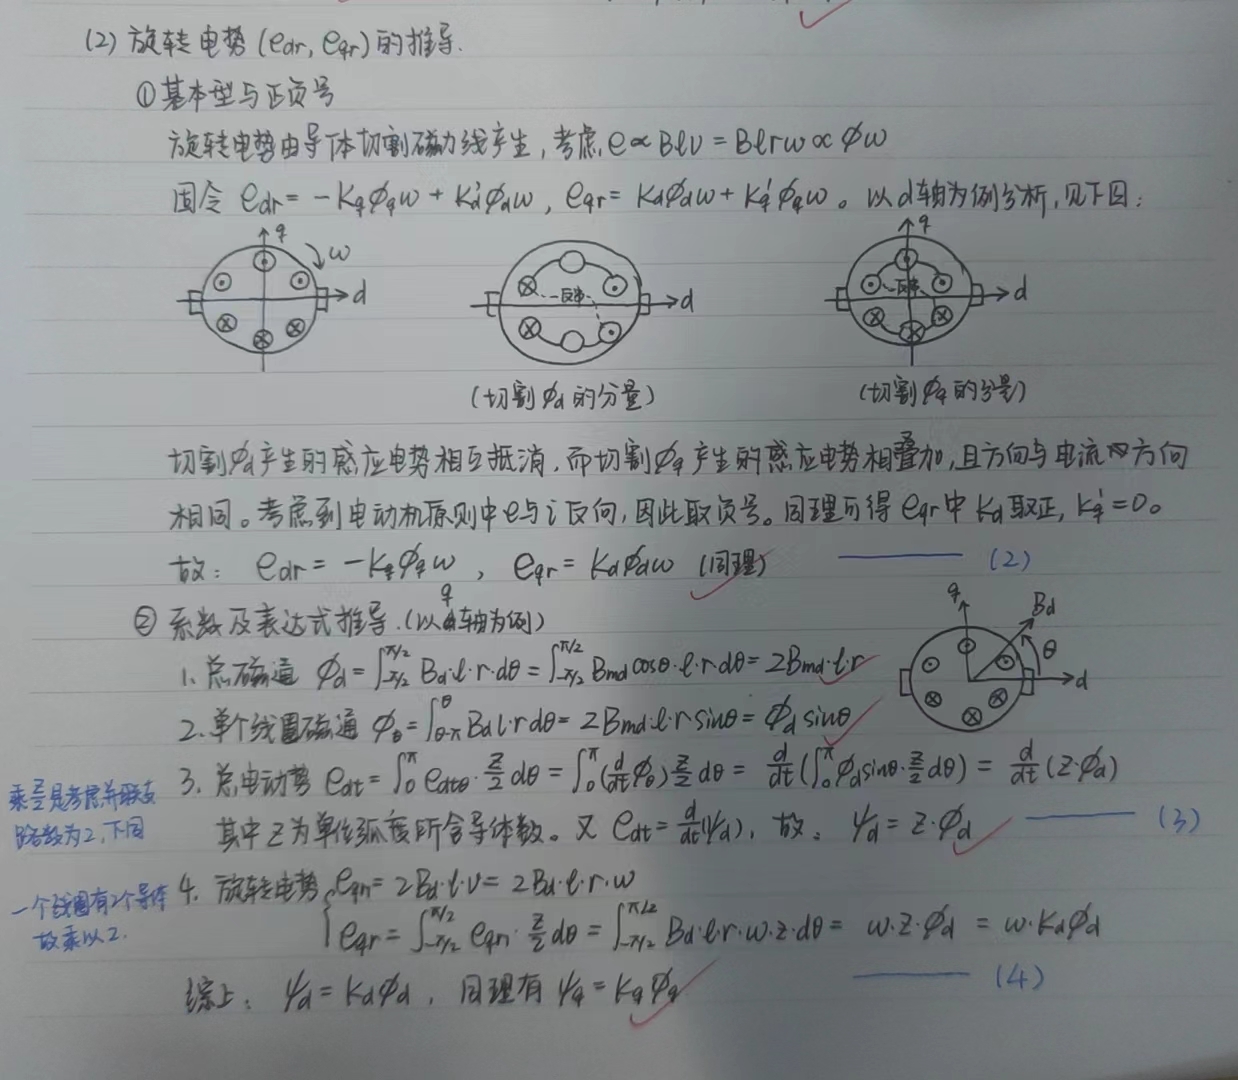 (2) 旋转电势 (edr, eqr) 的推导.
① 基本型与正负号
旋转电势由导体切割磁力线产生, 考虑 e∝Blv = Blrω∝ϕω
因令 edr = -Kqϕqω + Kd'ϕdω, eqr = Kdϕdω + Kq'ϕqω。以d轴为例分析, 见下图:
q ω d
反串 d
q 反串 d
(切割ϕd的分量)
(切割ϕq的分量)
切割ϕd产生的感应电势相互抵消, 而切割ϕq产生的感应电势相叠加, 且方向与电流方向
相同。考虑到电动机原则中e与i反向, 因此取负号。同理可得eqr中Kd取正, Kq'=0。
故: edr = -Kqϕqω, eqr = Kdϕdω (同理) (2)
② 系数及表达式推导.(以q轴为例)
q Bd θ d
1. 总磁通 ϕd = ∫_{-π/2}^{π/2} Bd·l·r·dθ = ∫_{-π/2}^{π/2} Bmd cosθ·l·r dθ = 2Bmd·l·r
2. 单个线圈磁通 ϕθ = ∫_{θ-π}^{θ} Bd l·r dθ = 2Bmd·l·r sinθ = ϕd sinθ
3. 总电动势 edt = ∫_0^π edtθ·z/2 dθ = ∫_0^π (d/dt ϕθ) z/2 dθ = d/dt (∫_0^π ϕd sinθ·z/2 dθ) = d/dt (z·ϕd)
乘z/2是考虑并联支
路数为2, 下同
其中z为单位弧度所含导体数。又 edt = d/dt(ψd), 故: ψd = z·ϕd (3)
4. 旋转电势 eqn = 2Bd·l·v = 2Bd·l·r·ω
一个线圈有2个导体
故乘以2.
eqr = ∫_{-π/2}^{π/2} eqn·z/2 dθ = ∫_{-π/2}^{π/2} Bd·l·r·ω·z·dθ = ω·z·ϕd = ω·Kdϕd
(4)
综上: ψd = Kdϕd, 同理有 ψq = Kqϕq